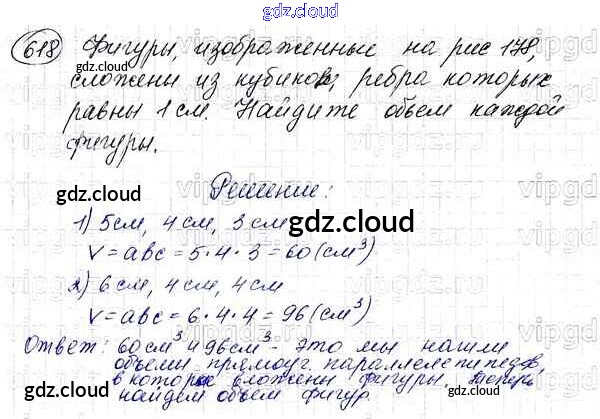 gdz.cloud
618 Фигуры, изображенные на рис 178,
gdz.cloud
сложены из кубиков, ребра которых
равны 1 см. Найдите объем каждой
фигуры.
gdz.cloud
Решение:
1) 5 см, 4 см, 3 см
gdz.cloud
V = abc = 5·4·3 = 60 (см³)
2) 6 см, 4 см, 4 см
V = abc = 6·4·4 = 96 (см³)
gdz.cloud
Ответ: 60 см³ и 96 см³ - это мы нашли
объемы прямоуг. параллелепипедов,
в которые вложены фигуры. Теперь
найдем объем фигур.
gdz.cloud